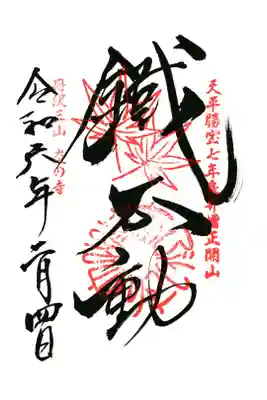 天平勝宝七年良弁僧正開山
鐵不動
丹波三山 の寺
令和年月四日